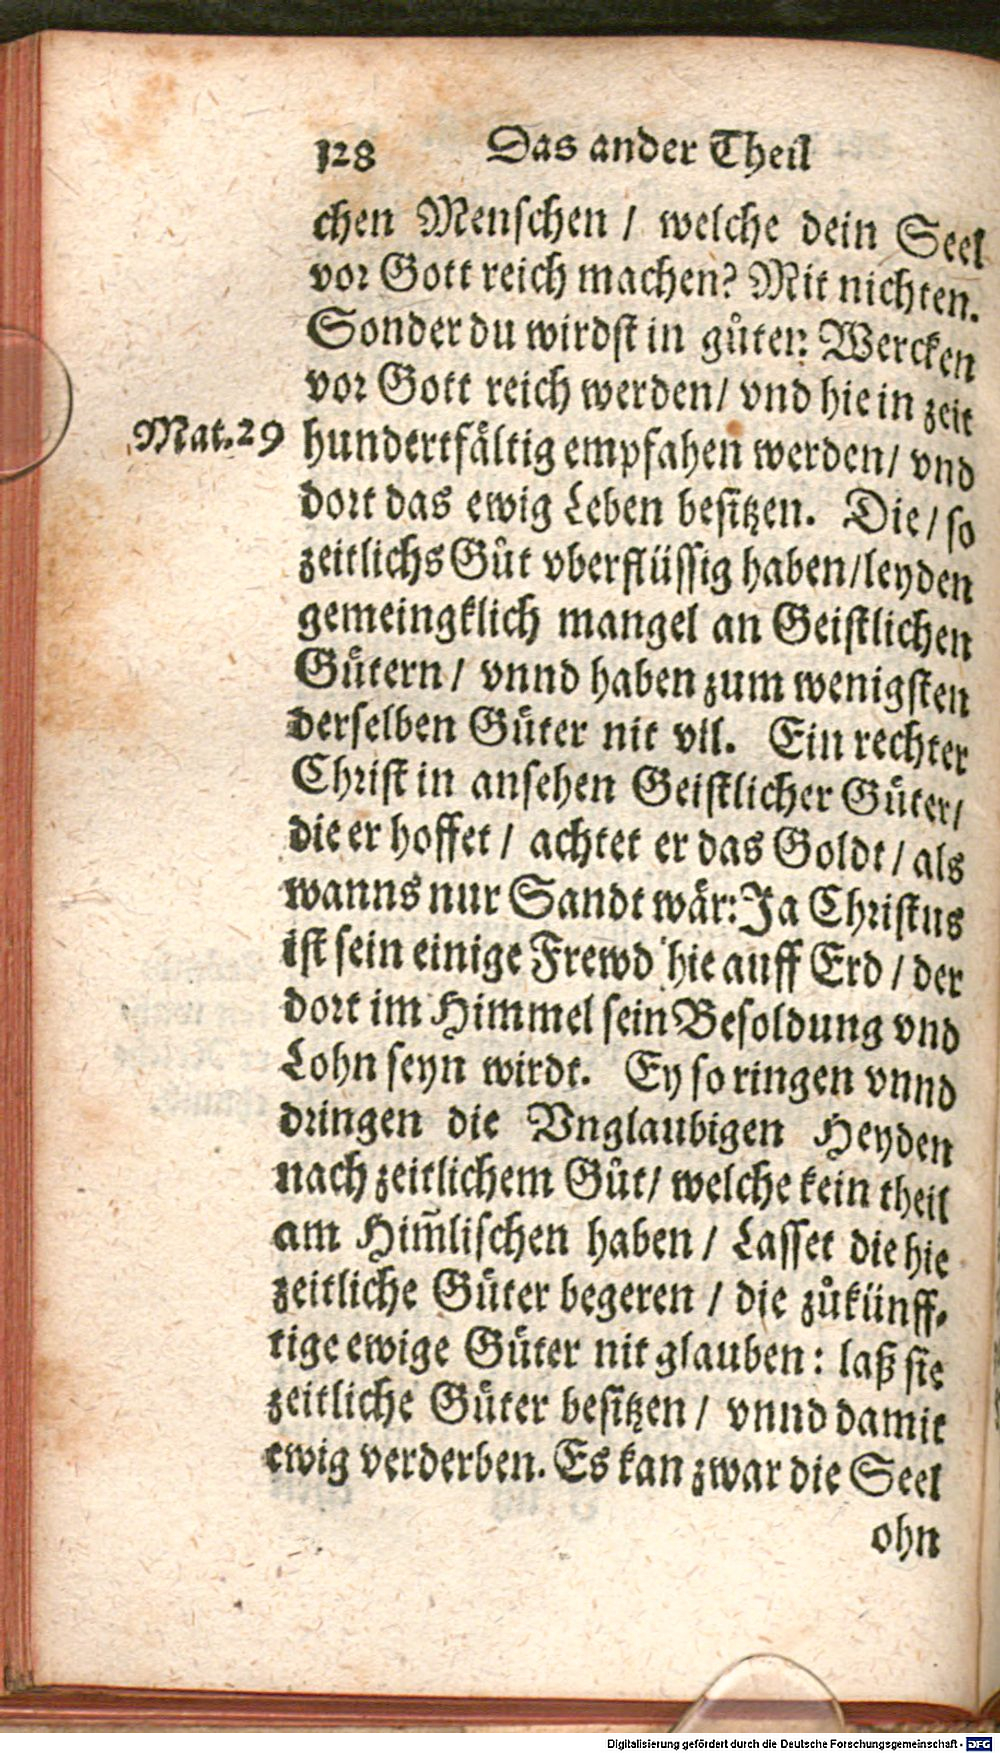 128 Das ander Theil
chen Menschen / welche dein Seel
vor Gott reich machen? Mit nichten.
Sonder du wirdst in gůten Wercken
vor Gott reich werden / vnd hie in zeit
Mat. 29
hundertfältig empfahen werden / vnd
dort das ewig Leben besitzen. Die / so
zeitlichs Gůt vberflüssig haben / leyden
gemeingklich mangel an Geistlichen
Gütern / vnnd haben zum wenigsten
derselben Güter nit vil. Ein rechter
Christ in ansehen Geistlicher Güter /
die er hoffet / achtet er das Goldt / als
wanns nur Sandt wär: Ja Christus
ist sein einige Frewd hie auff Erd / der
dort im Himmel sein Besoldung vnd
Lohn seyn wirdt. Ey so ringen vnnd
dringen die Vnglaubigen Heyden
nach zeitlichem Gůt / welche kein theil
am Him̃lischen haben / Lasset die hie
zeitliche Güter begeren / die zůkünff-
tige ewige Güter nit glauben: laß sie
zeitliche Güter besitzen / vnnd damit
ewig verderben. Es kan zwar die Seel
ohn
Digitalisierung gefördert durch die Deutsche Forschungsgemeinschaft - DFG